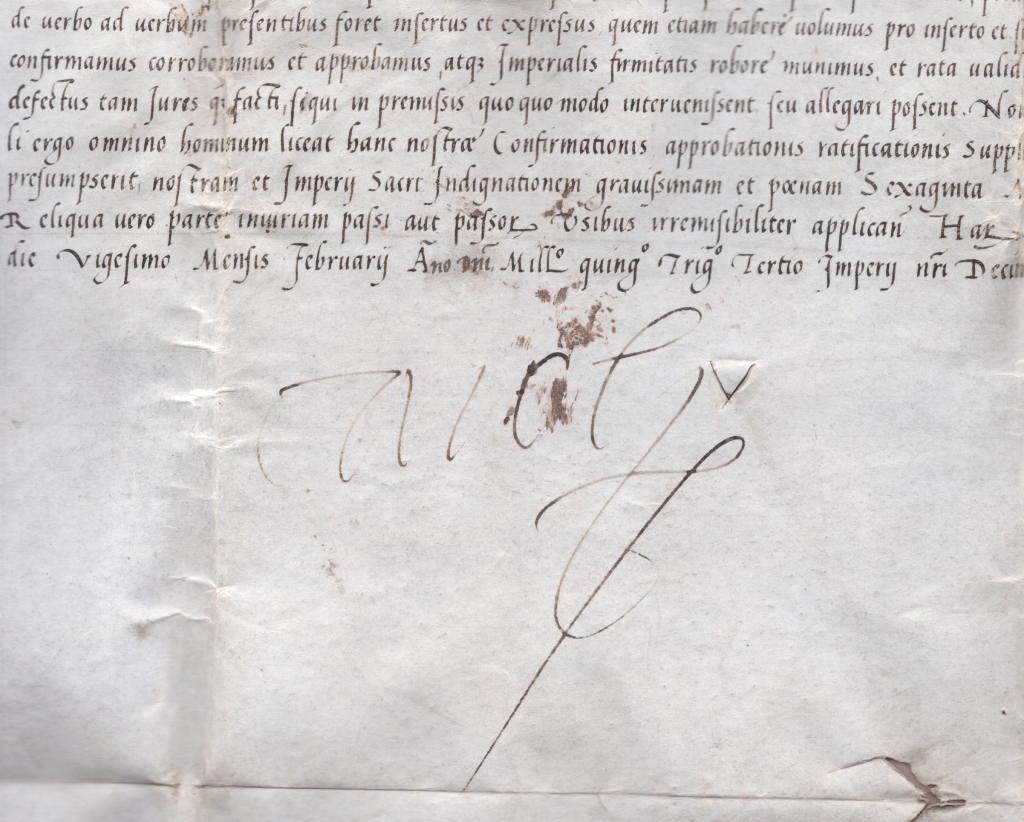 de verbo ad verbum presentibus foret insertus et expressus quem etiam habere uolumus pro inserto et
confirmamus corroboramus et approbamus, atq3 Imperialis firmitatis robore munimus, et rata valid
defectus tam Iures q3 facti, siqui in premissis quo quo modo interuenissent seu allegari possent. No
li ergo omnino hominum liceat hanc nostræ Confirmationis approbationis ratificationis Suppl
presumpserit, nostram et Imperij Sacri Indignationem grauissimam et pœnam Sexaginta
Reliqua uero parte iniuriam passi aut passor Vsibus irremisibiliter applican̄ Har
die Vigesimo Mensis Februarij Āno Dn̄i Millº quingº Trigº Tertio Imperij nr̄i Decim